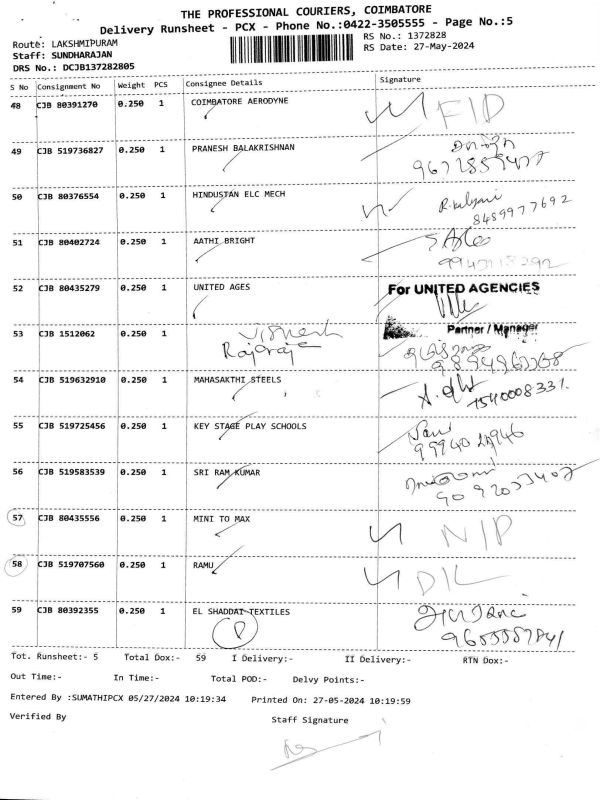 THE PROFESSIONAL COURIERS, COIMBATORE
Delivery Runsheet - PCX - Phone No.:0422-3505555 - Page No.:5
Route: LAKSHMIPURAM RS No.: 1372828
Staff: SUNDHARAJAN RS Date: 27-May-2024
DRS No.: DCJB137282805
S No Consignment No Weight PCS Consignee Details Signature
48 CJB 80391270 0.250 1 COIMBATORE AERODYNE
49 CJB 519736827 0.250 1 PRANESH BALAKRISHNAN
50 CJB 80376554 0.250 1 HINDUSTAN ELC MECH
8489977692
51 CJB 80402724 0.250 1 AATHI BRIGHT
52 CJB 80435279 0.250 1 UNITED AGES For UNITED AGENCIES
Partner / Manager
53 CJB 1512062 0.250 1 Vignesh
Rajaraja
54 CJB 519632910 0.250 1 MAHASAKTHI STEELS
7540008331.
55 CJB 519725456 0.250 1 KEY STAGE PLAY SCHOOLS
56 CJB 519583539 0.250 1 SRI RAM KUMAR
57 CJB 80435556 0.250 1 MINI TO MAX N/P
58 CJB 519707560 0.250 1 RAMU D/L
59 CJB 80392355 0.250 1 EL SHADDAI TEXTILES
P
Tot. Runsheet:- 5 Total Dox:- 59 I Delivery:- II Delivery:- RTN Dox:-
Out Time:- In Time:- Total POD:- Delvy Points:-
Entered By :SUMATHIPCX 05/27/2024 10:19:34 Printed On: 27-05-2024 10:19:59
Verified By Staff Signature